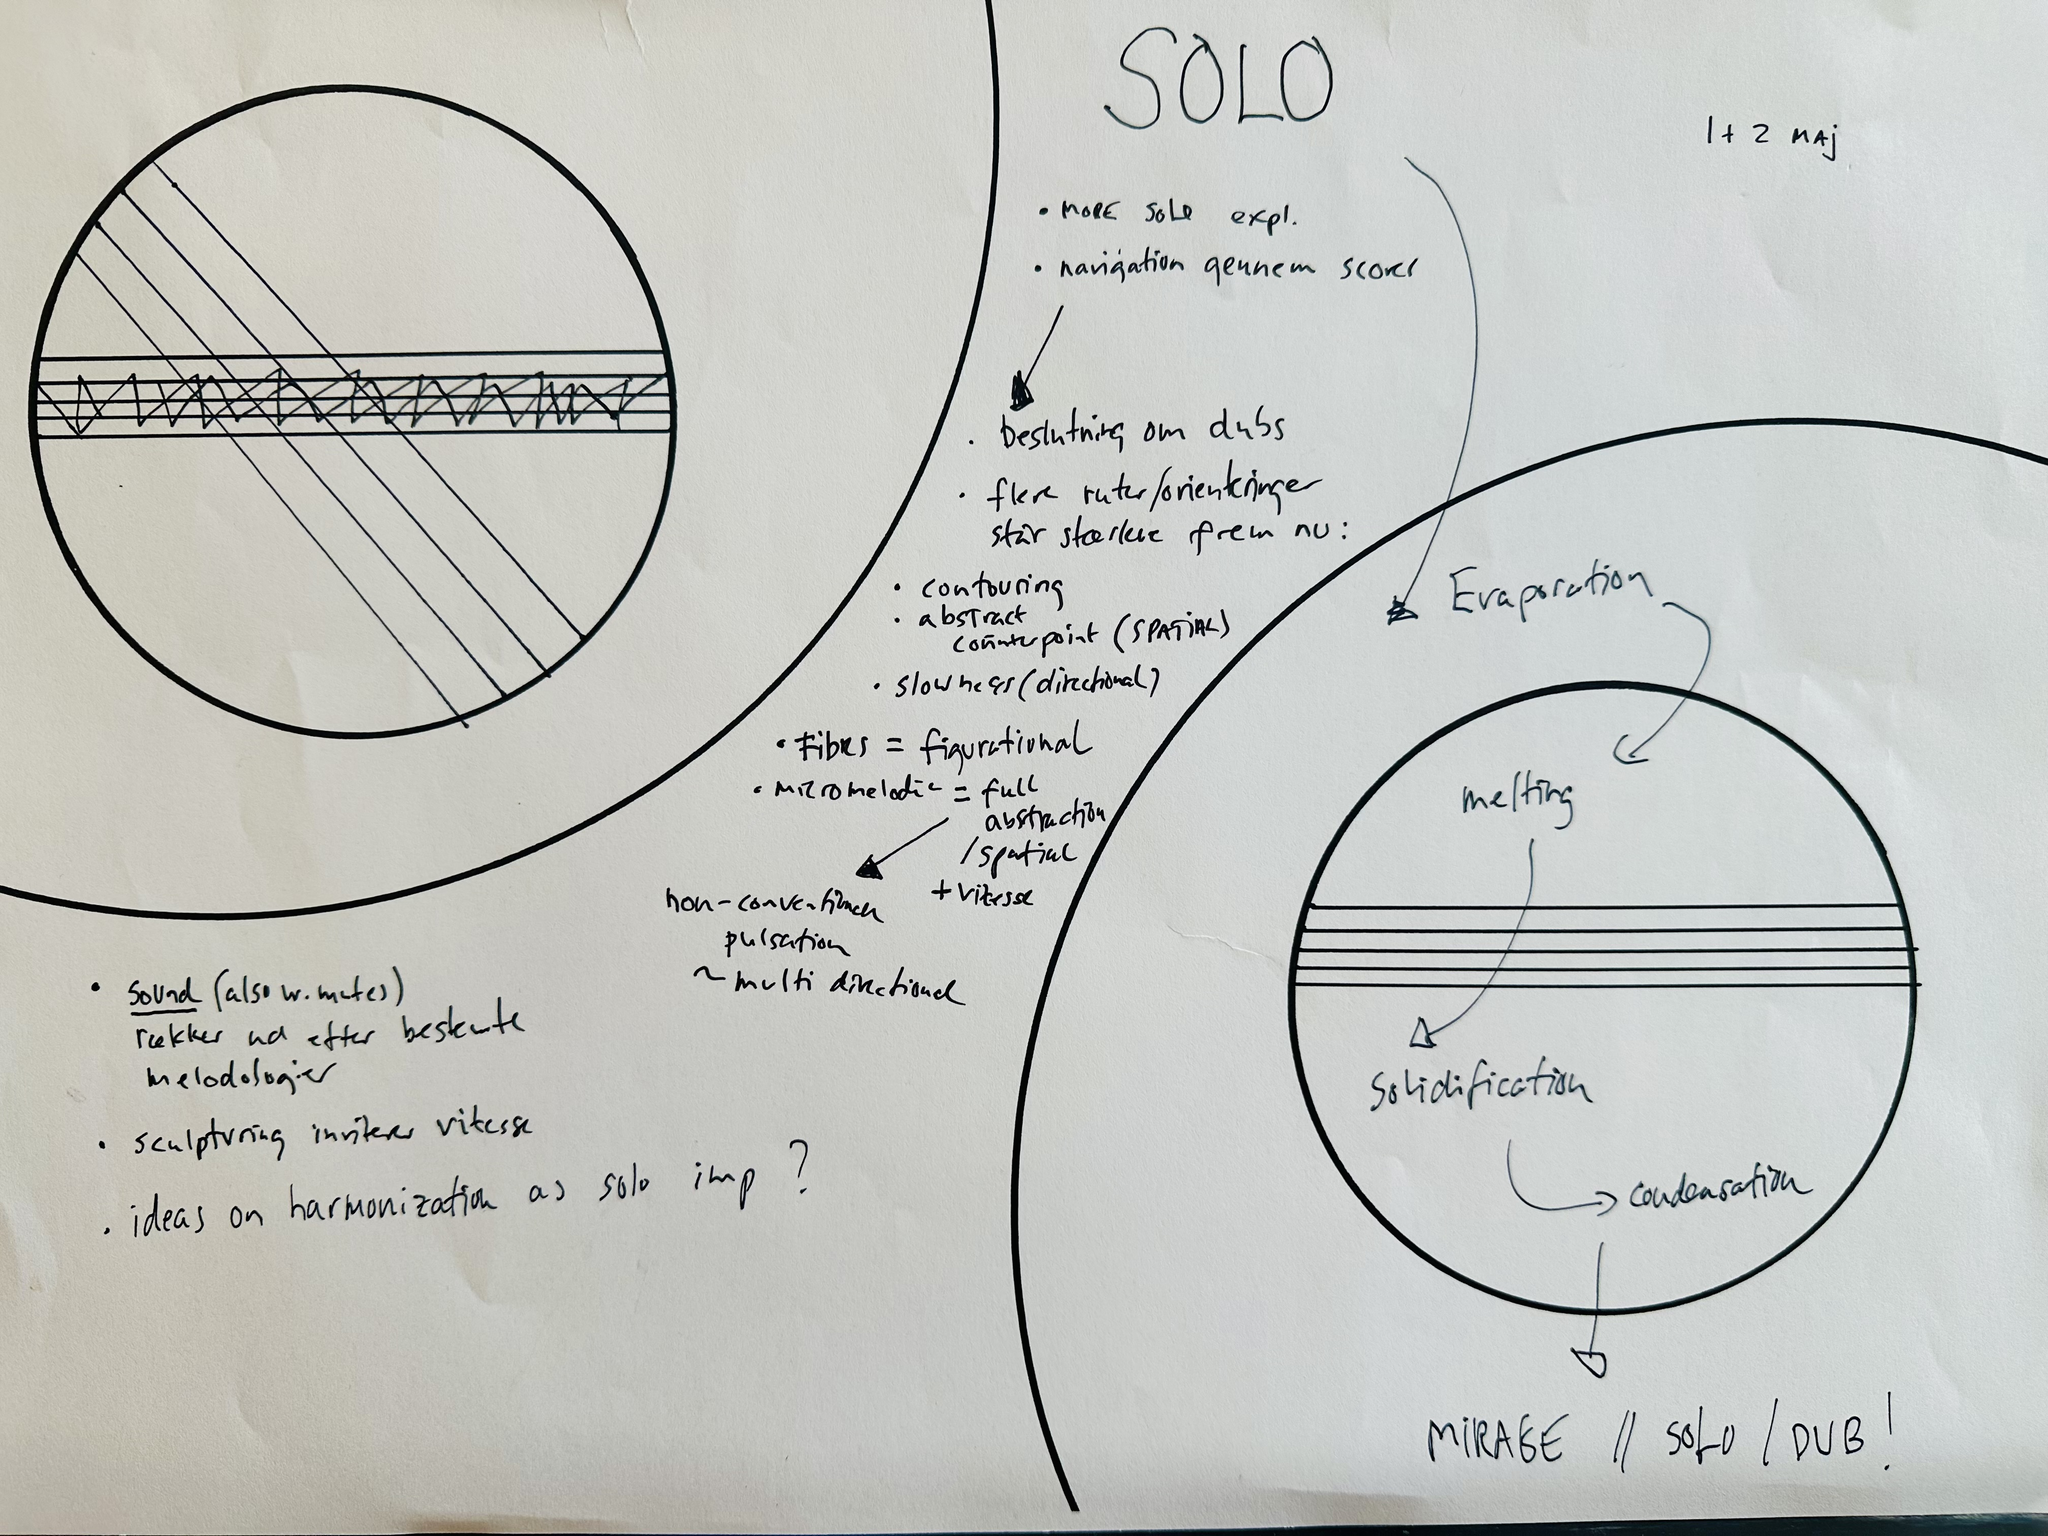 SOLO
1 + 2 MAj
• MORE SOLO expl.
• navigation gennem scores
• beslutning om dubs
• flere ruter/orienteringer
står stærkere frem nu:
• contouring
• abstract
counterpoint (SPATIAL)
• slowness (directional)
• Fibres = figurational
• micromelodic = full
abstraction
/spatial
+ vitesse
non-conventional
pulsation
~ multi directional
• sound (also w. mutes)
rækker ud efter bestemte
melodologier
• sculpturing inviterer vitesse
• ideas on harmonization as solo imp ?
Evaporation
melting
Solidification
condensation
MIRAGE // SOLO / DUB !